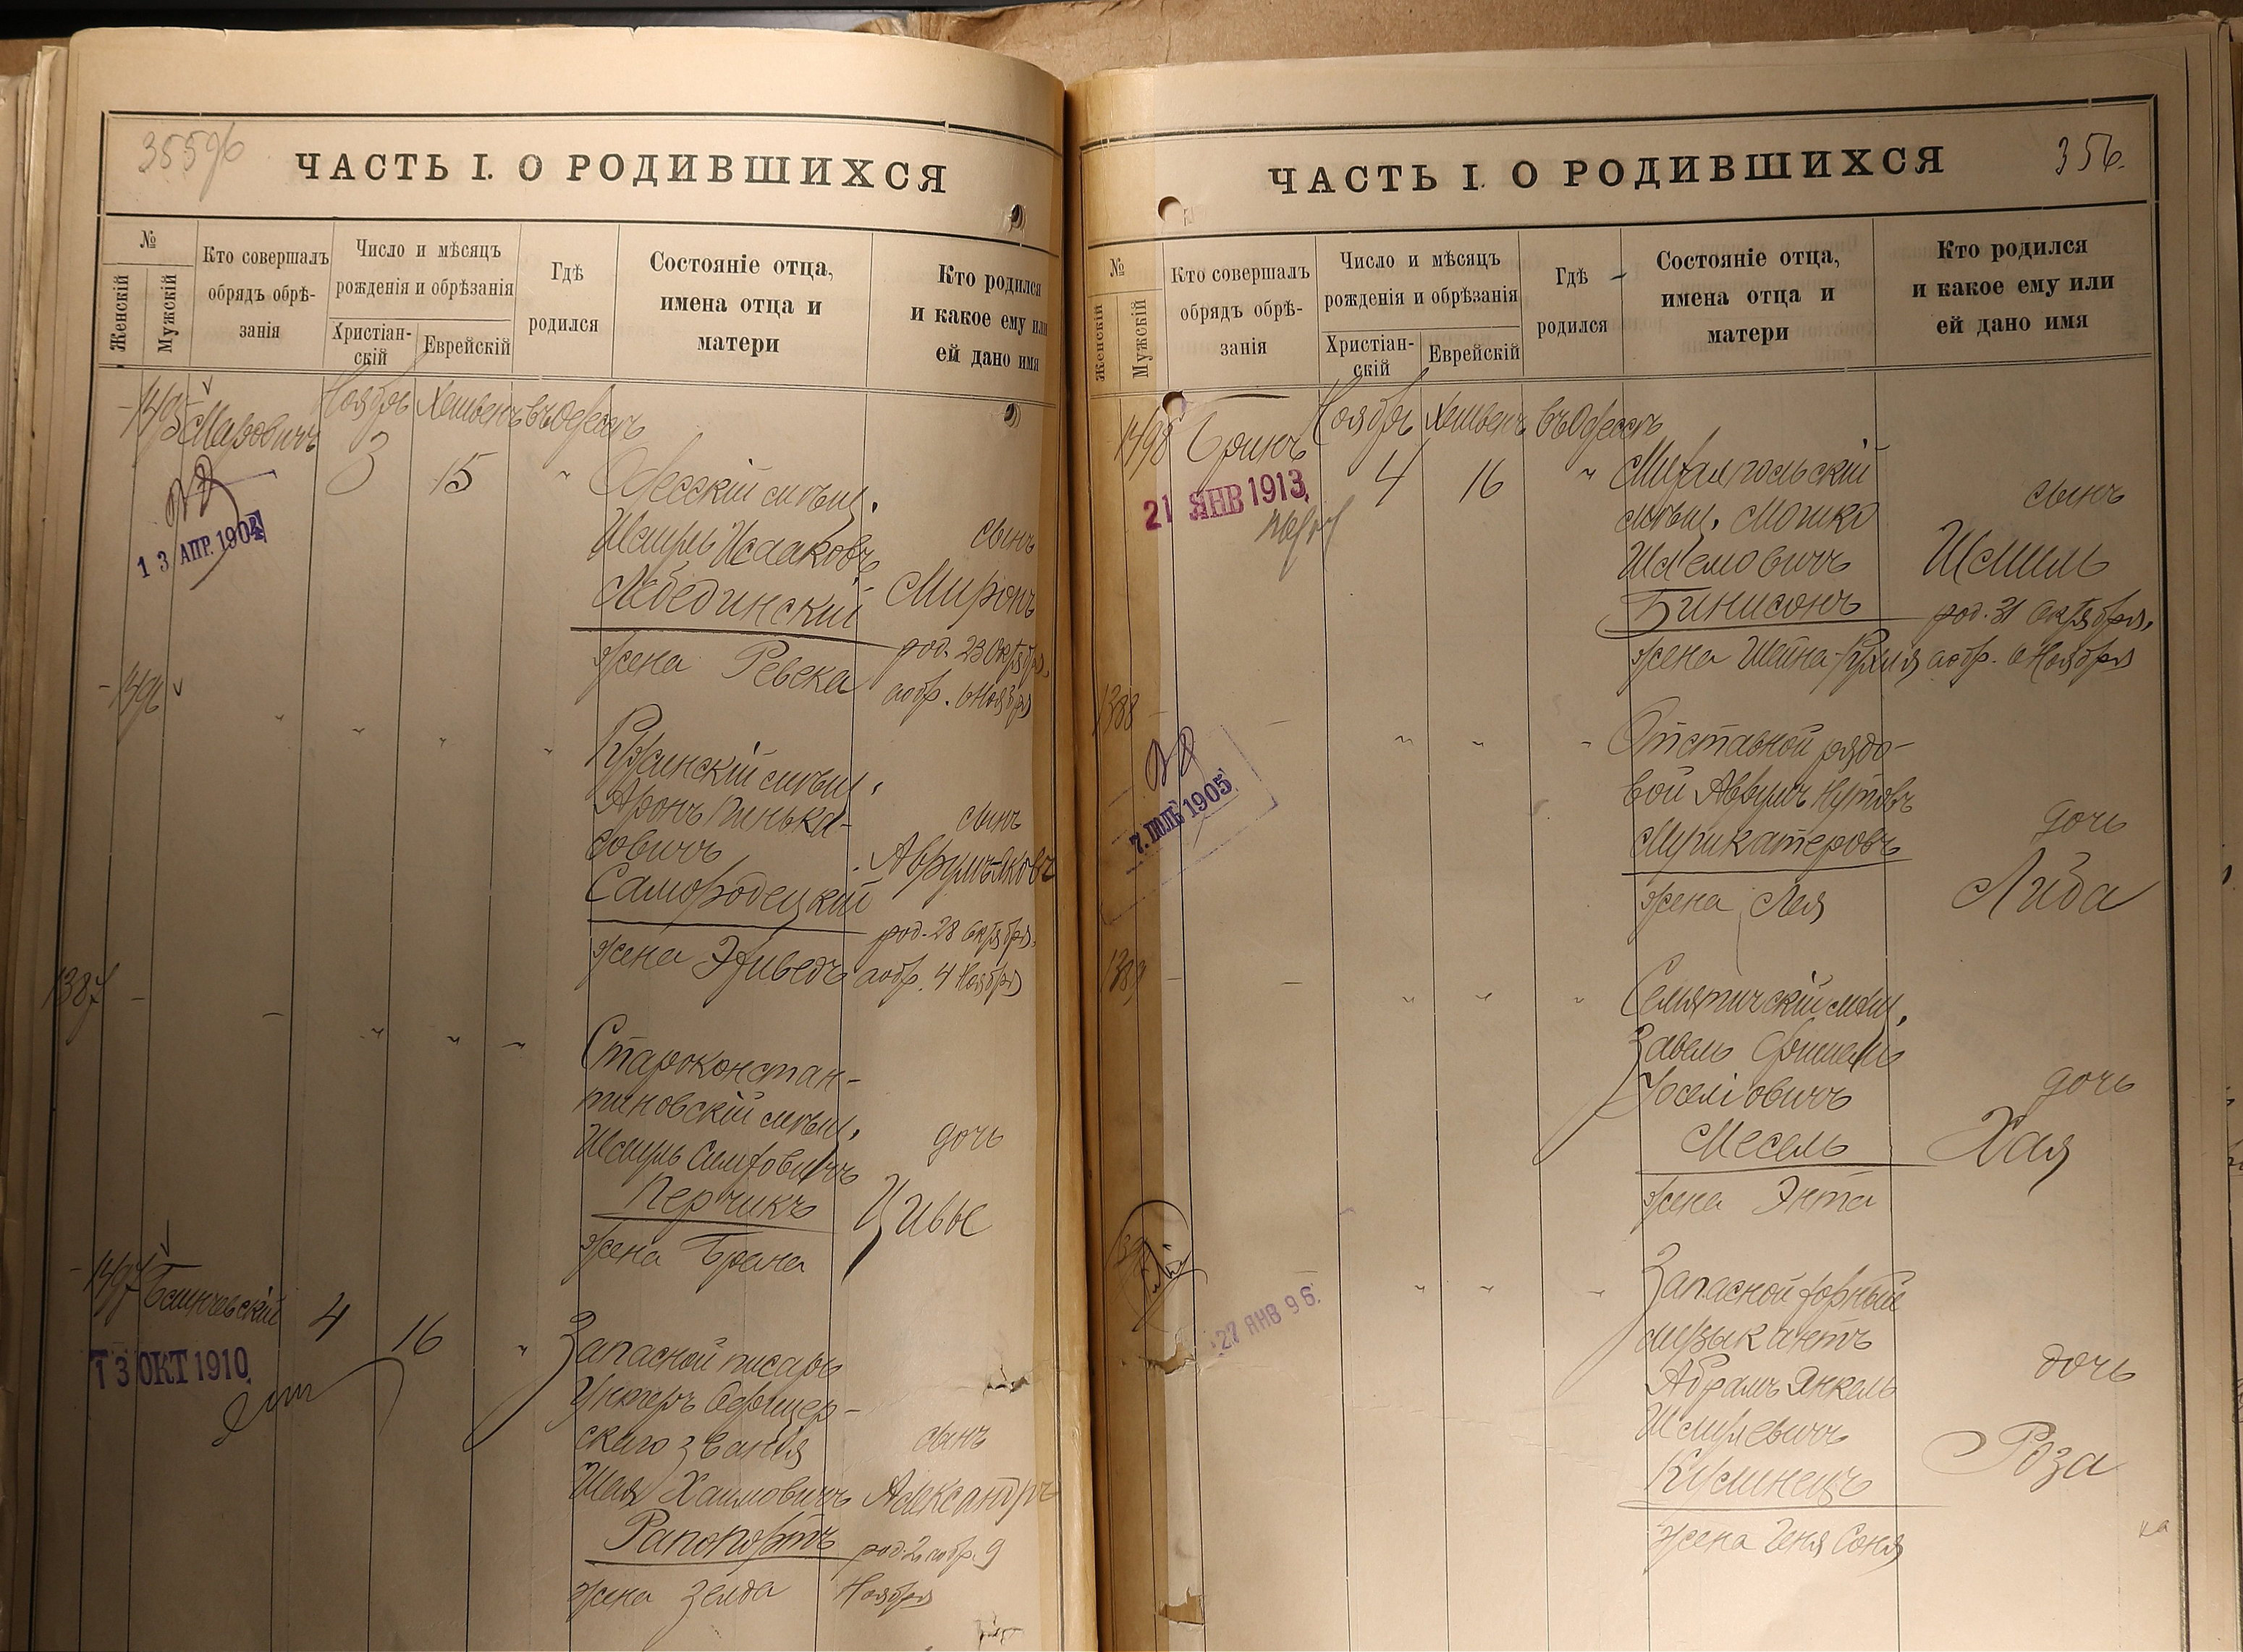 355об
ЧАСТЬ I. О РОДИВШИХСЯ
№
Женскій
Мужскій
Кто совершалъ
обрядъ обрѣ-
занія
Число и мѣсяцъ
рожденія и обрѣзанія
Христіан-
скій
Еврейскій
Гдѣ
родился
Состояніе отца,
имена отца и
матери
Кто родился
и какое ему или
ей дано имя
1495
Ноябрь Хешвенъ въ Одессѣ
3 15 "
13 АПР. 1904
Одесскій мѣщ.
Исааковъ
Лебединскій
жена Ревека
сынъ
Миронъ
род. 23 Октября,
обр. 6 Ноября
1496
" " " "
мѣщ.
Аронъ Пинька-
совичъ
Самородецкій
жена
сынъ
Аврумъ-Яковъ
род. 28 Октября,
обр. 4 Ноября
1387 -
- " " "
Староконстан-
тиновскій мѣщ.
Перчикъ
жена Брана
дочь
Цивье
1497
4 16 "
13 ОКТ 1910
Запасной писарь
Унтеръ Офицер-
скаго званія
Шая Хаимовичъ
Рапопортъ
жена Зелда
сынъ
Александръ
род. 2, обр. 9
Ноября
356.
ЧАСТЬ I. О РОДИВШИХСЯ
№
Женскій
Мужскій
Кто совершалъ
обрядъ обрѣ-
занія
Число и мѣсяцъ
рожденія и обрѣзанія
Христіан-
скій
Еврейскій
Гдѣ
родился
Состояніе отца,
имена отца и
матери
Кто родился
и какое ему или
ей дано имя
1498
Ноябрь Хешвенъ въ Одессѣ
4 16 "
21 ЯНВ 1913
мѣщ. Мошко
Бинисонъ
жена Шейна
сынъ
род. 31 Октября,
обр. 6 Ноября
1388 -
- " " "
7. ІЮЛЬ 1905
Отставной рядо-
вой
жена Лея
дочь
Либа
1389 -
- " " "
мѣщ.
Завель Фишель
Іоселіовичъ
Месель
жена Энта
дочь
Хая
" " "
27 ЯНВ 96.
Запасной
музыкантъ
Абрамъ Янкель
Шмулевичъ
жена Геня Соня
дочь
Роза